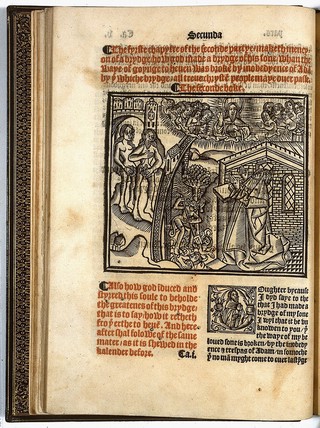 Secunda
¶The fyrste chapytre of the seconde partye maketh mency-
on of a brydge how god made a brydge of his sone / whan the
waye of goynge to heuen was broke by inobedyence of Adā
by þ whiche brydge / all true crystē people maye ouer passe.
¶The seconde boke.
¶Also how god iduced and
styreth this soule to beholde
the greatenes of this brydge /
that is to say / how it retcheth
fro þ erthe to heuē. And here-
after shal folowe of the same
mater / as it is shewed in the
kalender before. Ca.i.
Doughter bycause
I dyd saye to the
that I had made a
brydge of my sone
I wyl that it be vn
knowen to you / þ
the waye of my be
loued sone is broken / by the inobedy
ence & trespas of Adam / in somoche
þ no mā myght come to euerlastyge